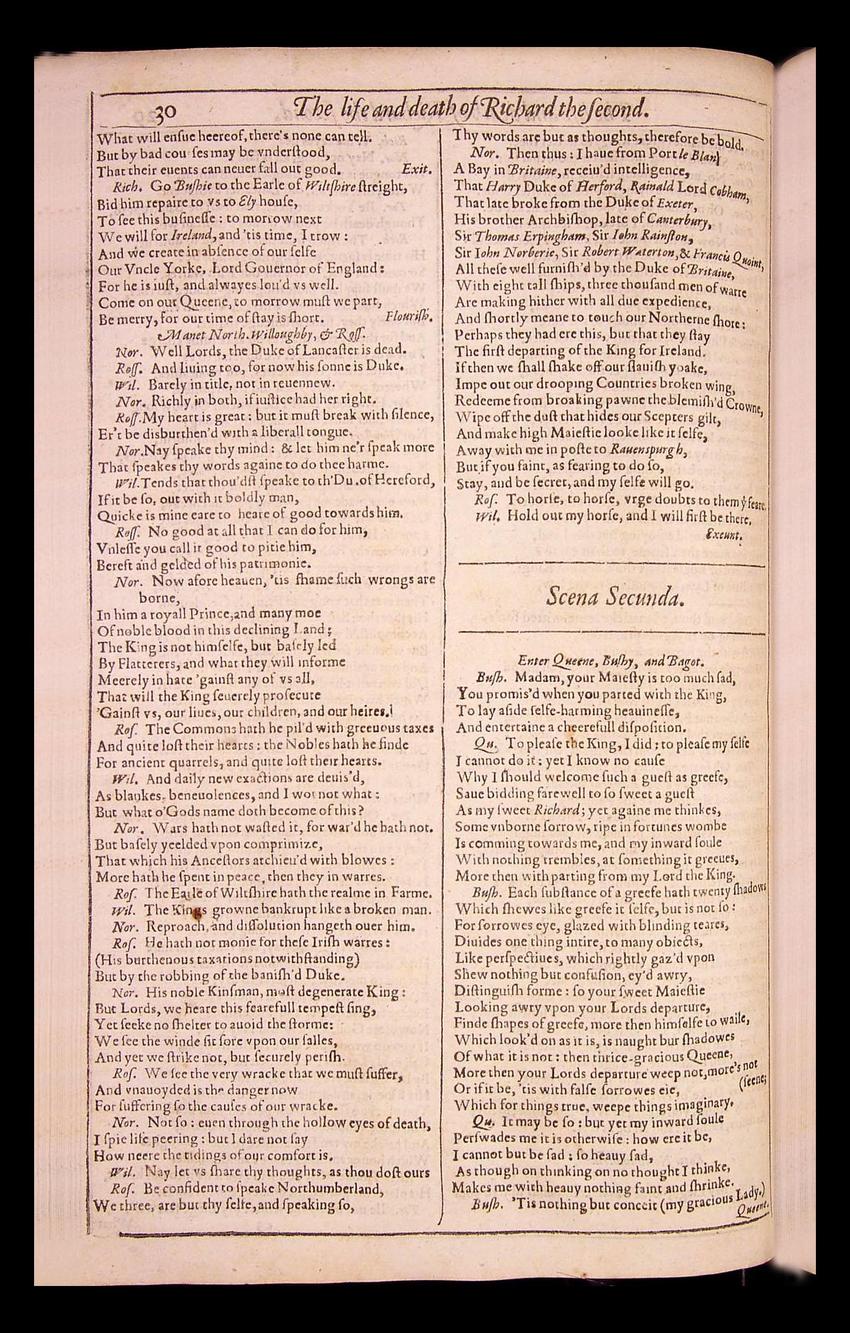 30
The life and death of Richard the ſecond.
What will enſue heereof, there's none can tell.
But by bad cou ſes may be vnderſtood,
That their euents can neuer fall out good. Exit.
Rich. Go Buſhie to the Earle of Wiltſhire ſtreight,
Bid him repaire to vs to Ely houſe,
To ſee this buſineſſe : to morrow next
We will for Ireland, and 'tis time, I trow :
And we create in abſence of our ſelfe
Our Vncle Yorke, Lord Gouernor of England :
For he is iuſt, and alwayes lou'd vs well.
Come on our Queene, to morrow muſt we part,
Be merry, for our time of ſtay is ſhort. Flouriſh.
Manet North. Willoughby, & Roſſ.
Nor. Well Lords, the Duke of Lancaſter is dead.
Roſſ. And liuing too, for now his ſonne is Duke.
Wil. Barely in title, not in reuennew.
Nor. Richly in both, if iuſtice had her right.
Roſſ. My heart is great : but it muſt break with ſilence,
Er't be disburthen'd with a liberall tongue.
Nor. Nay ſpeake thy mind : & let him ne'r ſpeak more
That ſpeakes thy words againe to do thee harme.
Wil. Tends that thou'dſt ſpeake to th'Du. of Hereford,
If it be ſo, out with it boldly man,
Quicke is mine eare to heare of good towards him.
Roſſ. No good at all that I can do for him,
Vnleſſe you call it good to pitie him,
Bereft and gelded of his patrimonie.
Nor. Now afore heauen, 'tis ſhame ſuch wrongs are
borne,
In him a royall Prince, and many moe
Of noble blood in this declining Land ;
The King is not himſelfe, but baſely led
By Flatterers, and what they will informe
Meerely in hate 'gainſt any of vs all,
That will the King ſeuerely proſecute
'Gainſt vs, our liues, our children, and our heires.
Roſ. The Commons hath he pil'd with greeuous taxes
And quite loſt their hearts : the Nobles hath he finde
For ancient quarrels, and quite loſt their hearts.
Wil. And daily new exactions are deuis'd,
As blankes, beneuolences, and I wot not what :
But what o'Gods name doth become of this?
Nor. Wars hath not waſted it, for war'd he hath not.
But baſely yeelded vpon comprimize,
That which his Anceſtors atchieu'd with blowes :
More hath he ſpent in peace, then they in warres.
Roſ. The Earle of Wiltſhire hath the realme in Farme.
Wil. The Kings growne bankrupt like a broken man.
Nor. Reproach, and diſſolution hangeth ouer him.
Roſ. He hath not monie for theſe Iriſh warres :
(His burthenous taxations notwithſtanding)
But by the robbing of the baniſh'd Duke.
Nor. His noble Kinſman, moſt degenerate King :
But Lords, we heare this fearefull tempeſt ſing,
Yet ſeeke no ſhelter to auoid the ſtorme:
We ſee the winde ſit ſore vpon our ſalles,
And yet we ſtrike not, but ſecurely periſh.
Roſ. We ſee the very wracke that we muſt ſuffer,
And vnauoyded is the danger now
For ſuffering ſo the cauſes of our wracke.
Nor. Not ſo : euen through the hollow eyes of death,
I ſpie life peering : but I dare not ſay
How neere the tidings of our comfort is.
Wil. Nay let vs ſhare thy thoughts, as thou doſt ours
Roſ. Be confident to ſpeake Northumberland,
We three, are but thy ſelfe, and ſpeaking ſo,
Thy words are but as thoughts, therefore be bold.
Nor. Then thus : I haue from Port le Blan
A Bay in Britaine, receiu'd intelligence,
That Harry Duke of Herford, Rainald Lord Cobham,
That late broke from the Duke of Exeter,
His brother Archbiſhop, late of Canterbury,
Sir Thomas Erpingham, Sir Iohn Rainſton,
Sir Iohn Norberie, Sir Robert Waterton, & Francis Quoint,
All theſe well furniſh'd by the Duke of Britaine,
With eight tall ſhips, three thouſand men of warre
Are making hither with all due expedience,
And ſhortly meane to touch our Northerne ſhore :
Perhaps they had ere this, but that they ſtay
The firſt departing of the King for Ireland.
If then we ſhall ſhake off our ſlauiſh yoake,
Impe out our drooping Countries broken wing,
Redeeme from broaking pawne the blemiſh'd Crowne,
Wipe off the duſt that hides our Scepters gilt,
And make high Maieſtie looke like it ſelfe,
Away with me in poſte to Rauenspurgh,
But if you faint, as fearing to do ſo,
Stay, and be ſecret, and my ſelfe will go.
Roſ. To horſe, to horſe, vrge doubts to them yͭ feare.
Wil. Hold out my horſe, and I will firſt be there,
Exeunt.
Scena Secunda.
Enter Queene, Buſhy, and Bagot.
Buſh. Madam, your Maieſty is too much ſad,
You promis'd when you parted with the King,
To lay aſide ſelfe-harming heauineſſe,
And entertaine a cheerefull diſpoſition.
Qu. To pleaſe the King, I did : to pleaſe my ſelfe
I cannot do it : yet I know no cauſe
Why I ſhould welcome ſuch a gueſt as greefe,
Saue bidding farewell to ſo ſweet a gueſt
As my ſweet Richard; yet againe me thinkes,
Some vnborne ſorrow, ripe in fortunes wombe
Is comming towards me, and my inward ſoule
With nothing trembles, at ſomething it greeues,
More then with parting from my Lord the King.
Buſh. Each ſubſtance of a greefe hath twenty ſhadows
Which ſhewes like greefe it ſelfe, but is not ſo :
For ſorrowes eye, glazed with blinding teares,
Diuides one thing intire, to many obiects,
Like perſpectiues, which rightly gaz'd vpon
Shew nothing but confuſion, ey'd awry,
Diſtinguiſh forme : ſo your ſweet Maieſtie
Looking awry vpon your Lords departure,
Finde ſhapes of greefe, more then himſelfe to waile,
Which look'd on as it is, is naught bur ſhadowes
Of what it is not : then thrice-gracious Queene,
More then your Lords departure weep not, more's not
(ſeene;
Or if it be, 'tis with falſe ſorrowes eie,
Which for things true, weepe things imaginary.
Qu. It may be ſo : but yet my inward ſoule
Perſwades me it is otherwiſe : how ere it be,
I cannot but be ſad : ſo heauy ſad,
As though on thinking on no thought I thinke,
Makes me with heauy nothing faint and ſhrinke.
Buſh. 'Tis nothing but conceit (my gracious Lady.)
Queene.